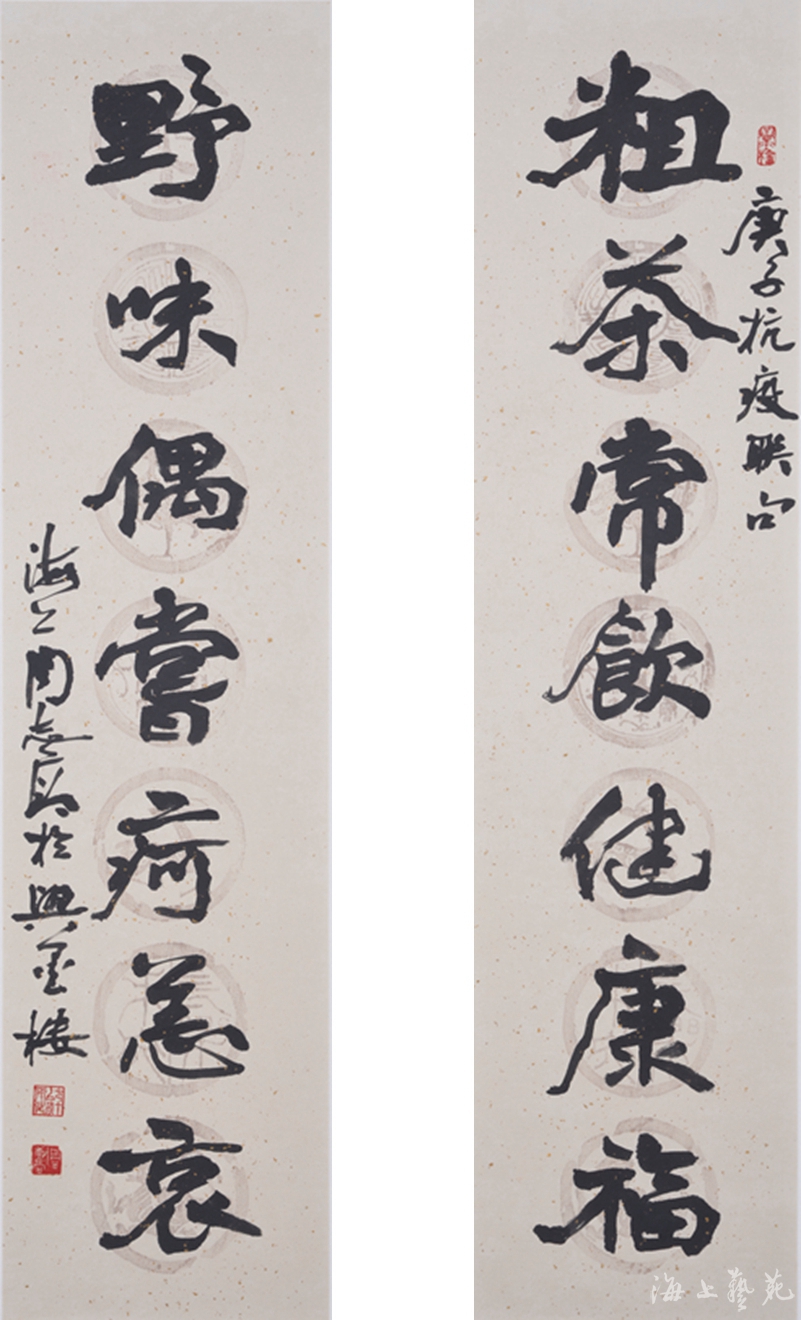 庚子抗疫联句
粗茶常飲健康福
野味偶嘗疴恙哀
海上周於樓
海上藝苑